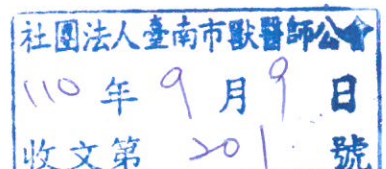 社團法人臺南市獸醫師公會
110年9月9日
收文第201號